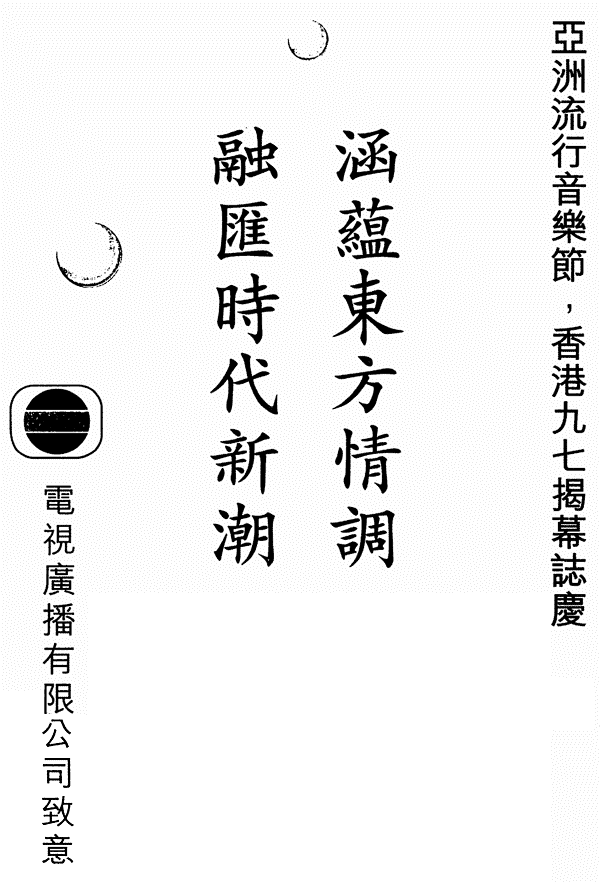 亞洲流行音樂節，香港九七揭幕誌慶
涵蘊東方情調
融匯時代新潮
電視廣播有限公司致意